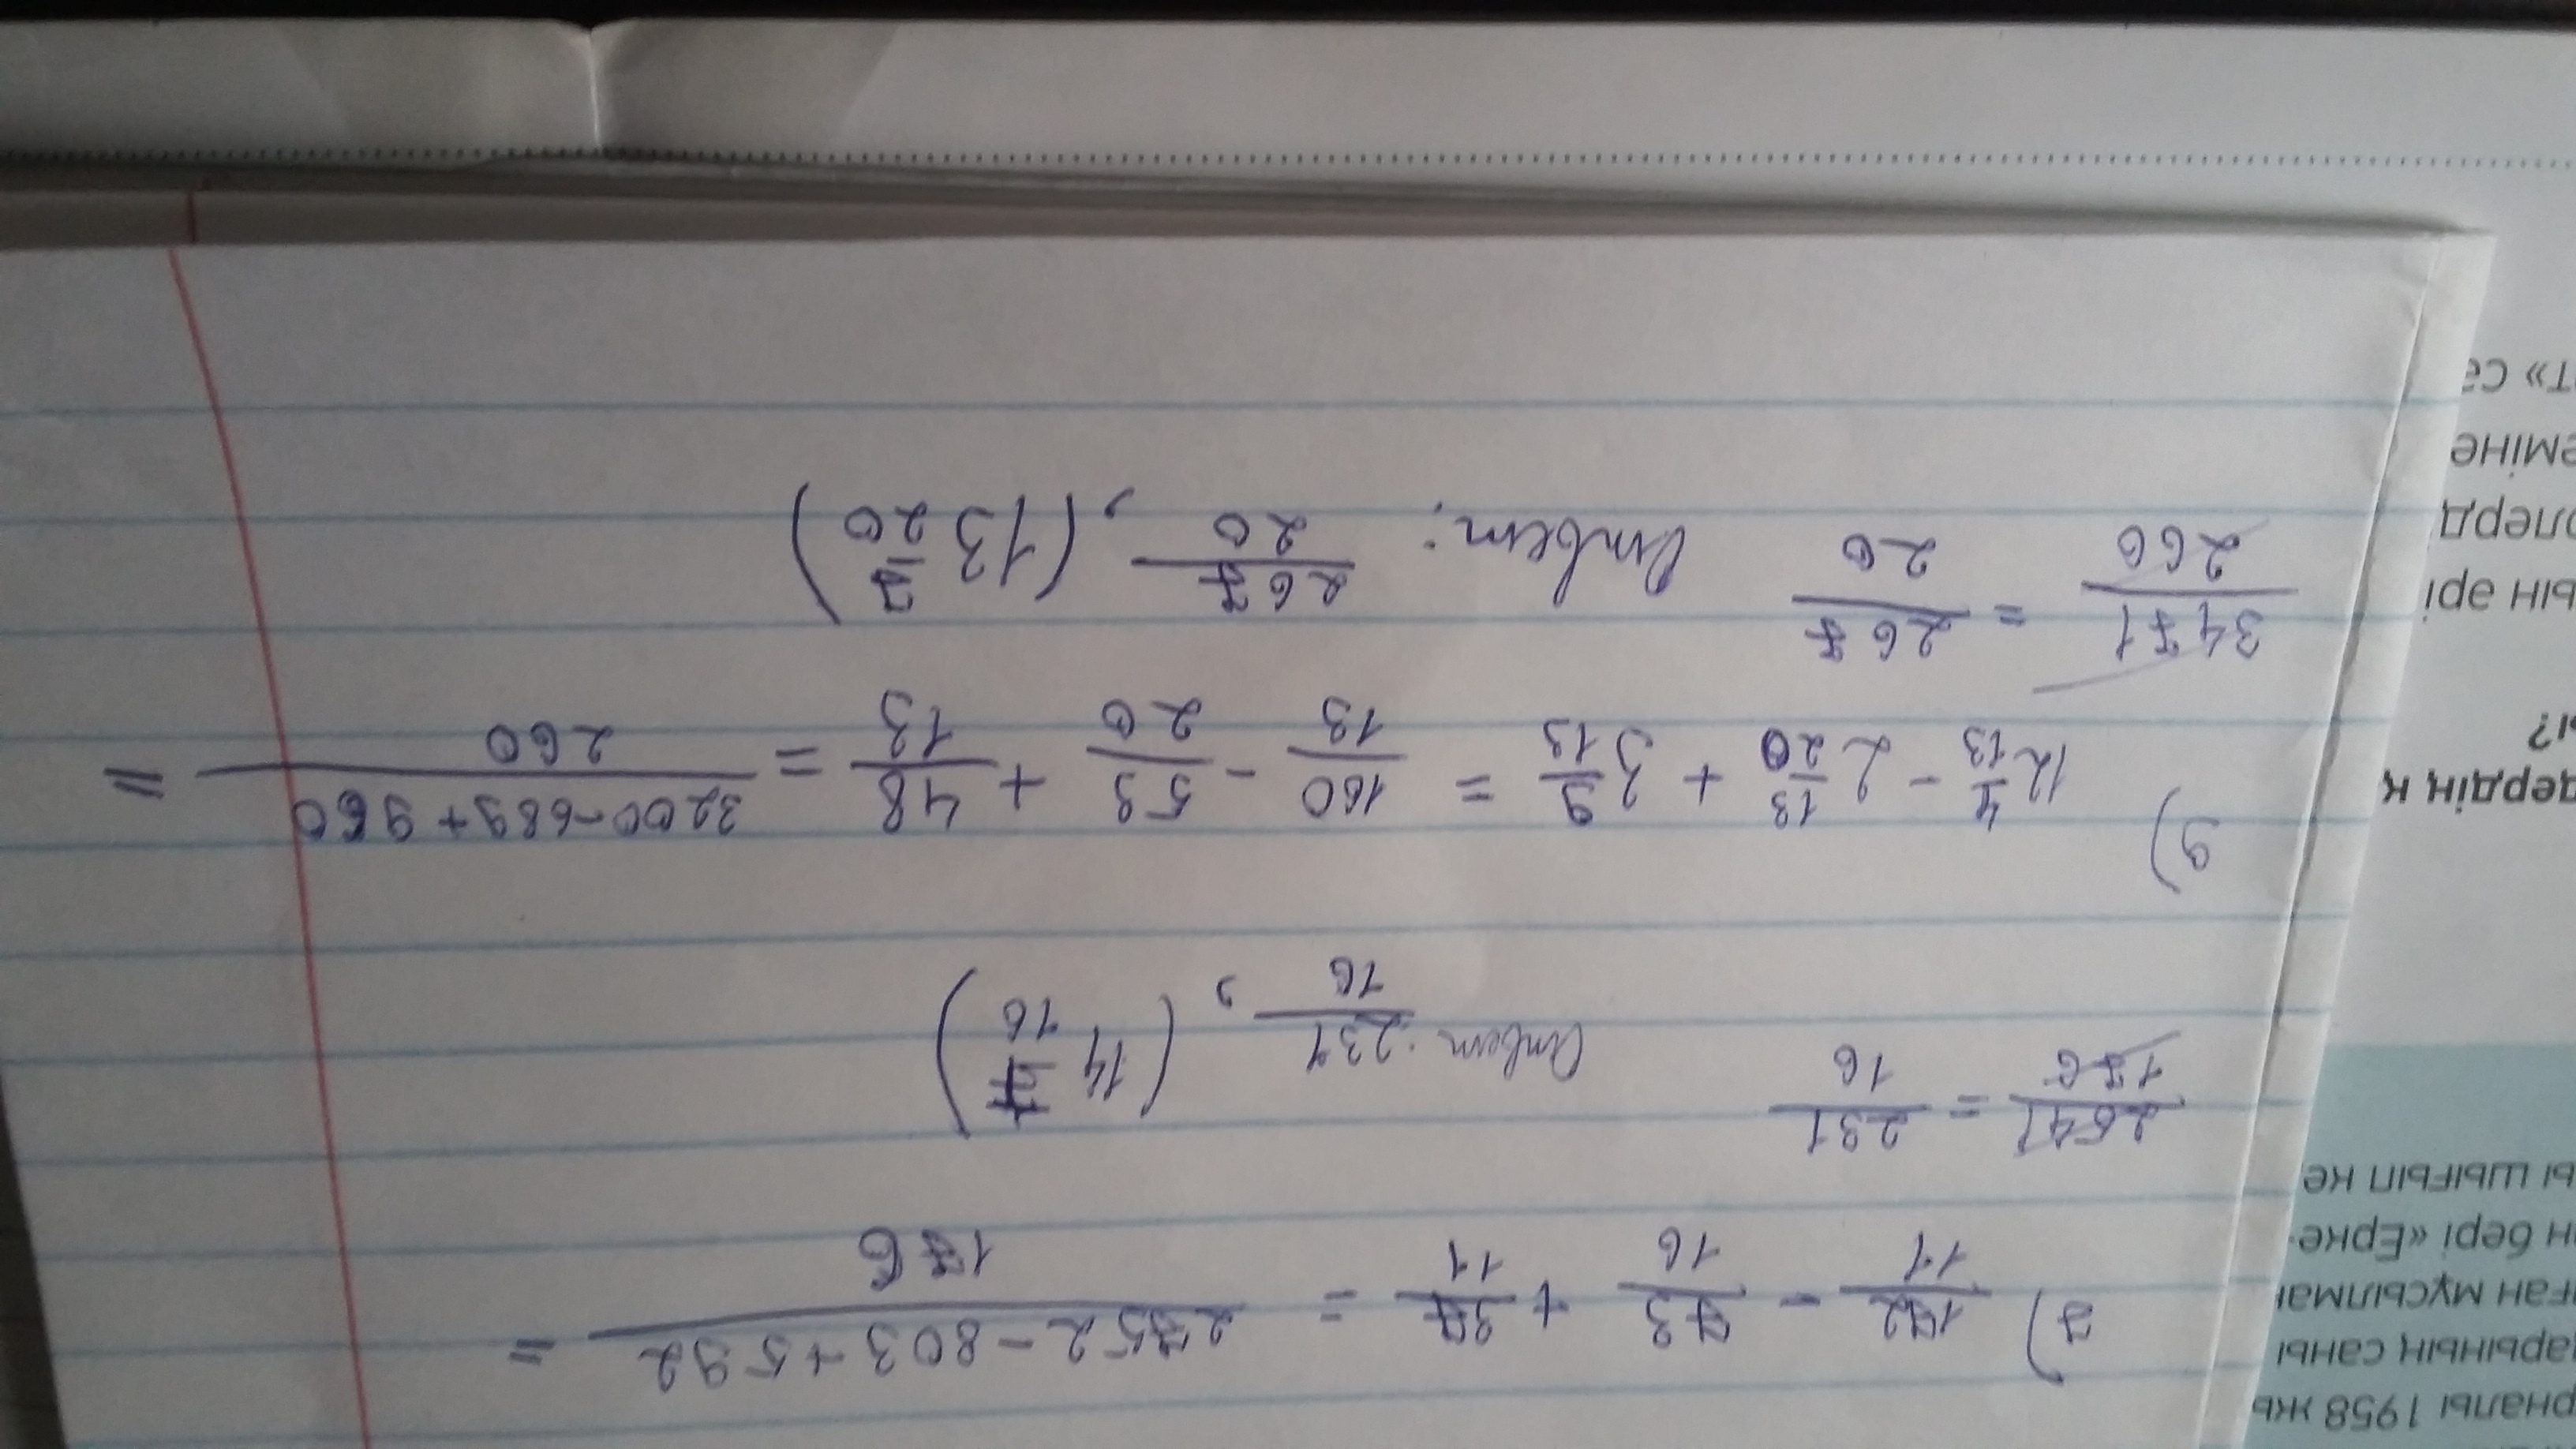 рналы 1958 жы
арының саны
ған мұсылма
н бері «Ерке-
ы шығып ке
дердің қ
ы?
ын әрі
лерд
еміне
т» са
7) 172/11 - 73/16 + 37/11 = 2752-803+592/176 =
2541/176 = 231/16 Ответ: 231/16, (14 7/16)
9) 12 4/13 - 2 13/20 + 3 9/13 = 160/13 - 53/20 + 48/13 = 3200-689+960/260 =
3471/260 = 267/20 Ответ: 267/20, (13 7/20)